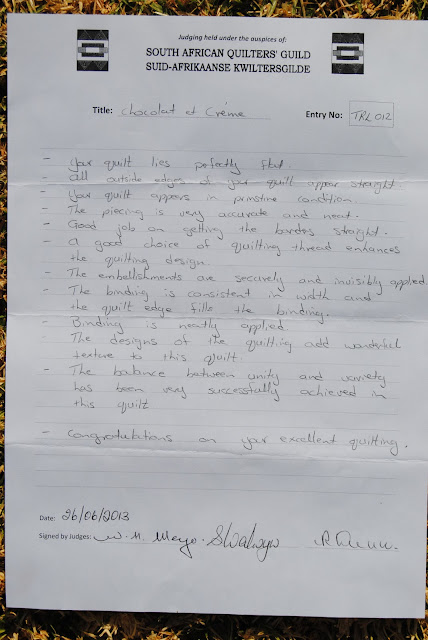 Judging held under the auspices of:
SOUTH AFRICAN QUILTERS' GUILD
SUID-AFRIKAANSE KWILTERSGILDE
Title: Chocolat et Créme
Entry No: TRL 012
- Your quilt lies perfectly flat.
- All outside edges of your quilt appear straight.
- Your quilt appears in primstine condition.
- The piecing is very accurate and neat.
- Good job on getting the border straight.
- A good choice of quilting thread enhances
the quilting design.
- The embellishments are securely and invisibly applied
- The binding is consistent in width and
the quilt edge fills the binding.
- Binding is neatly applied
- The designs of the quilting add wonderful
texture to this quilt.
- The balance between unity and variety
has been very successfully achieved in
this quilt
- Congratulations on your excellent quilting.
Date: 26/06/2013
Signed by Judges: W. H. Mayo.